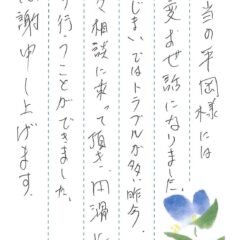 当の平岡様には
変お世話になりました。
じまい、ではトラブルが多い昨今、
々相談に来って頂き、円滑に
り行うことができました。
謝申し上げます。